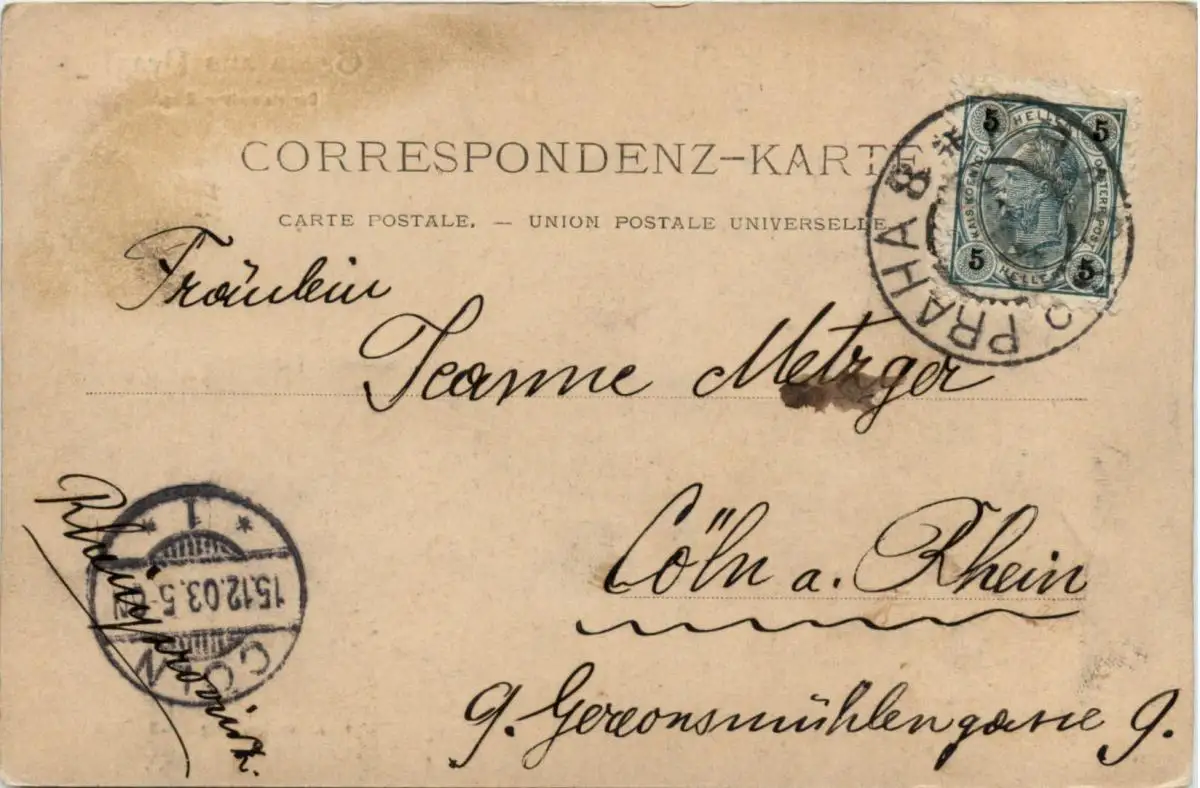 CORRESPONDENZ-KARTE
CARTE POSTALE. — UNION POSTALE UNIVERSELLE
5 HELLER 5
KAIS. KOENIGL. OESTERR. POST
5 HELLER 5
PRAHA 8
Fräulein
Jeanne Metzger
Cöln a. Rhein
9. Gereonsmühlengasse 9.
Rheinprovinz.
* 1 *
15.12.03. 5-
CÖLN